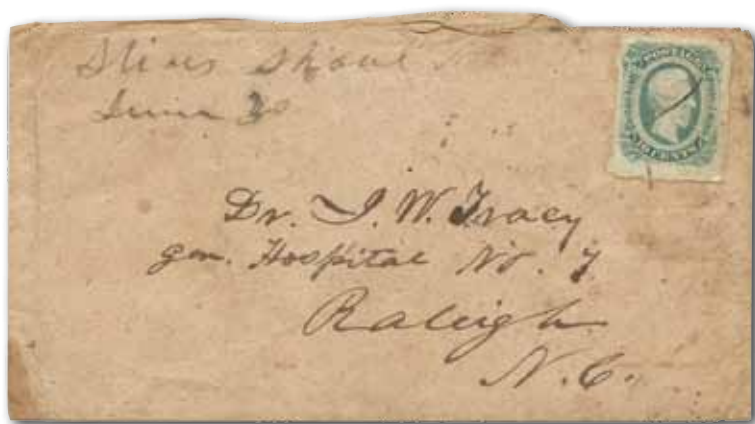 Stices Shoal
June 30
POSTAGE
CENTS
Dr. J. W. Tracy
gen. Hospital No. 7
Raleigh
N. C.